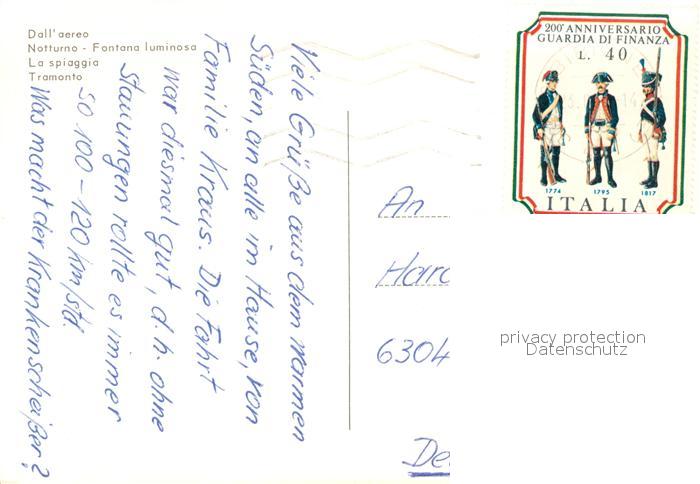 Dall'aereo
Notturno - Fontana luminosa
La spiaggia
Tramonto
Viele Grüße aus dem warmen
Süden, an alle im Hause, von
Familie Kraus. Die Fahrt
war diesmal gut, d.h. ohne
Stauungen rollte es immer
so 100-120 km/std.
Was macht der Krankenscheißer?
200° ANNIVERSARIO
GUARDIA DI FINANZA
L. 40
1774 1795 1817
ITALIA
An
6304
privacy protection
Datenschutz